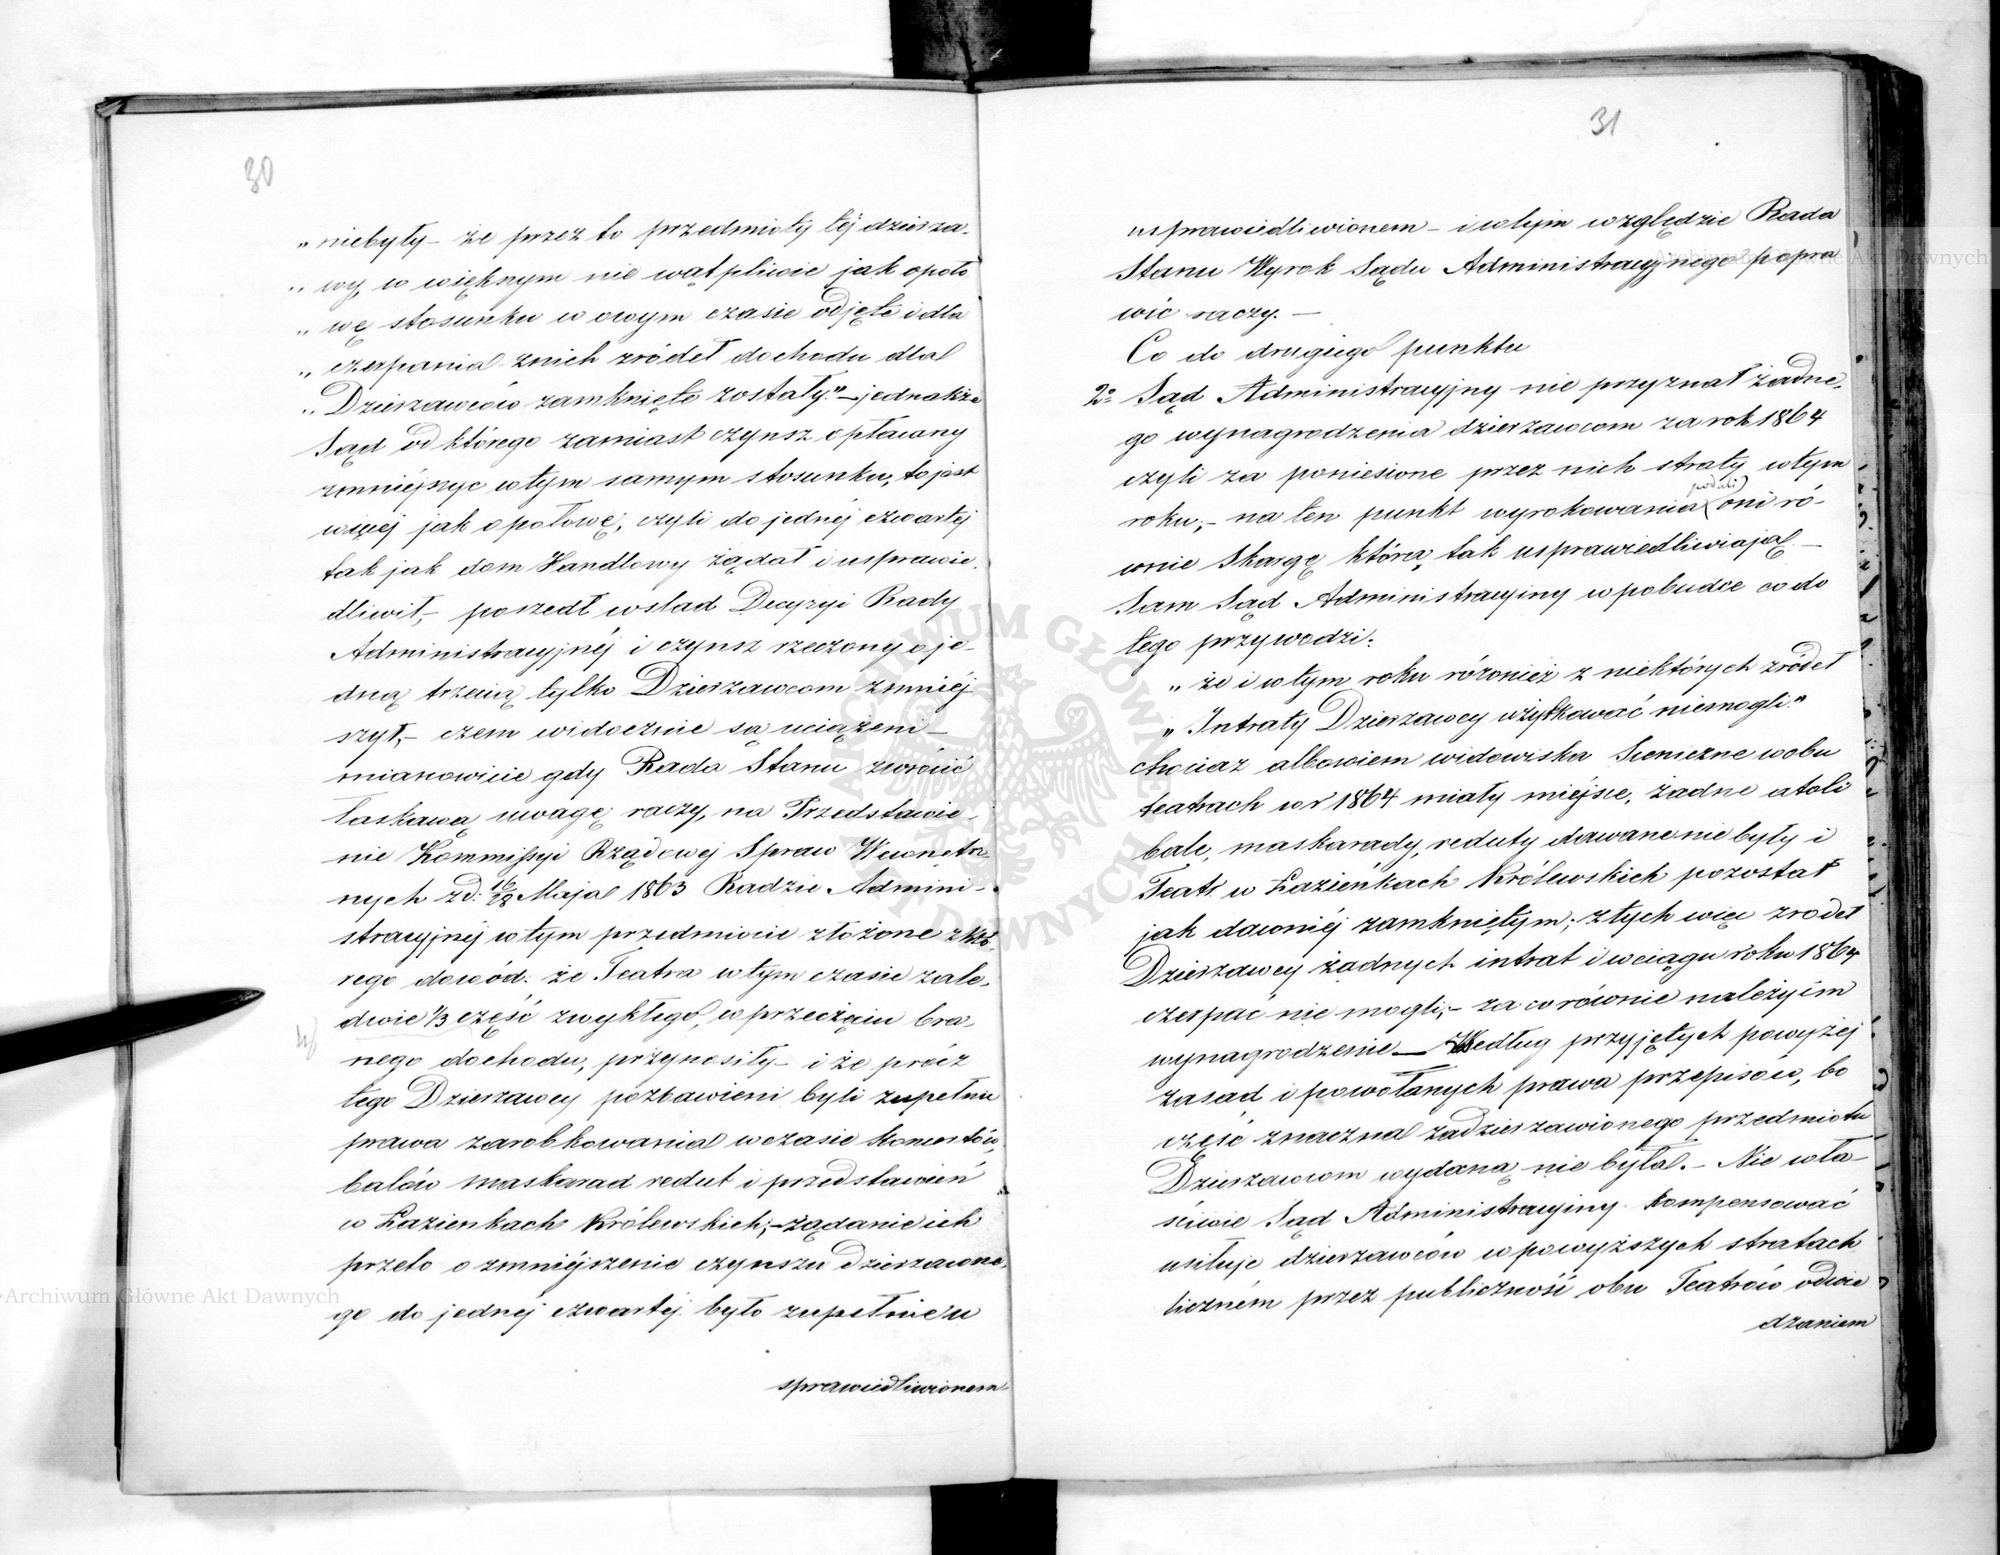 30
„ niebyły – że przez to przedmioty téj dzierza-
„ wy, w większnym nie wątpliwie jak opoło
„ wę stosunku w owym czasie odjęte i dla
„ czerpania z nich zródeł dochodu dla
„ Dzierzawców zamknięte zostały." – jednakże
Sąd od którego zamiast czynsz opłacany
zmniéjszyc w tym samym stosunku, to jest
więcéj jak o połowę, czyli do jednéj czwartéj
tak jak dom Handlowy żądał i usprawie-
dliwił, – poszedł w slad Decyzyi Rady
Administracyjnéj i czynsz rzeczony o je-
dną trzecią tylko Dzierzawcom zmniéj-
szył, – czem widocznie są uciążeni –
mianowicie gdy Rada Stanu zwrócić
łaskawą uwagę raczy, na Przedstawie-
nie Kommissyi Rządowej Spraw Wewnętrz-
nych z d: 16/28 Maja 1863 Radzie Admini-
stracyjnéj w tym przedmiocie złożone z któ-
rego dowód: że Teatra w tym czasie zale-
dwie 1/3 część zwykłego, w przecięciu bra-
nego dochodu, przynosiły – i że prócz
tego Dzierzawcy pozbawieni byli zupełnie
prawa zarobkowania w czasie koncertów,
balów maskarad redut i przedstawień
w Łazienkach Królewskich; – żądanie ich
przeto o zmniéjszenie czynszu dzierzawne-
go do jednéj czwartéj było zupełnie u
sprawiedliwionem
31
usprawiedliwionem – i w tym względzie Rada
Stanu Wyrok Sądu Administracyjnego popra
wić raczy. –
Co do drugiego punktu
2º Sąd Administracyjny nie przyznał żadne-
go wynagrodzenia dzierzawcom za rok 1864
czyli za poniesione przez nich straty w tym
podali
roku; – na ten punkt wyrokowania oni ró-
wnie Skargę którą tak usprawiedliwiają –
Sam Sąd Administracyiny w pobudce co do
tego przywodzi:
„ że i w tym roku również z niektórych zródeł
„ Intraty Dzierzawcy użytkować niemogli."
chociaz albowiem widowiska Sceniczne w obu
teatrach w r 1864 miały miéjsce, żadne atoli
bale, maskarady, reduty dawane nie były i
Teatr w Łazienkach Królewskich pozostał
jak dawniéj zamkniętym; z tych więc zrodeł
Dzierzawcy żadnych intrat i w ciągu roku 1864
czerpać nie mogli; – za co równie należy im
wynagrodzenie – Według przyjętych powyżéj
zasad i powołanych prawa przepisów, bo
część znaczna zadzierzawionego przedmiotu
Dzierzawcom wydaną nie była. – Nie wła-
ściwie Sąd Administracyiny kompensować
usiłuje dzierzawców w powyższych stratach
liczném przez publiczność obu Teatrów odwie
dzaniem
Archiwum Główne Akt Dawnych
Archiwum Główne Akt Dawnych
ARCHIWUM GŁÓWNE AKT DAWNYCH